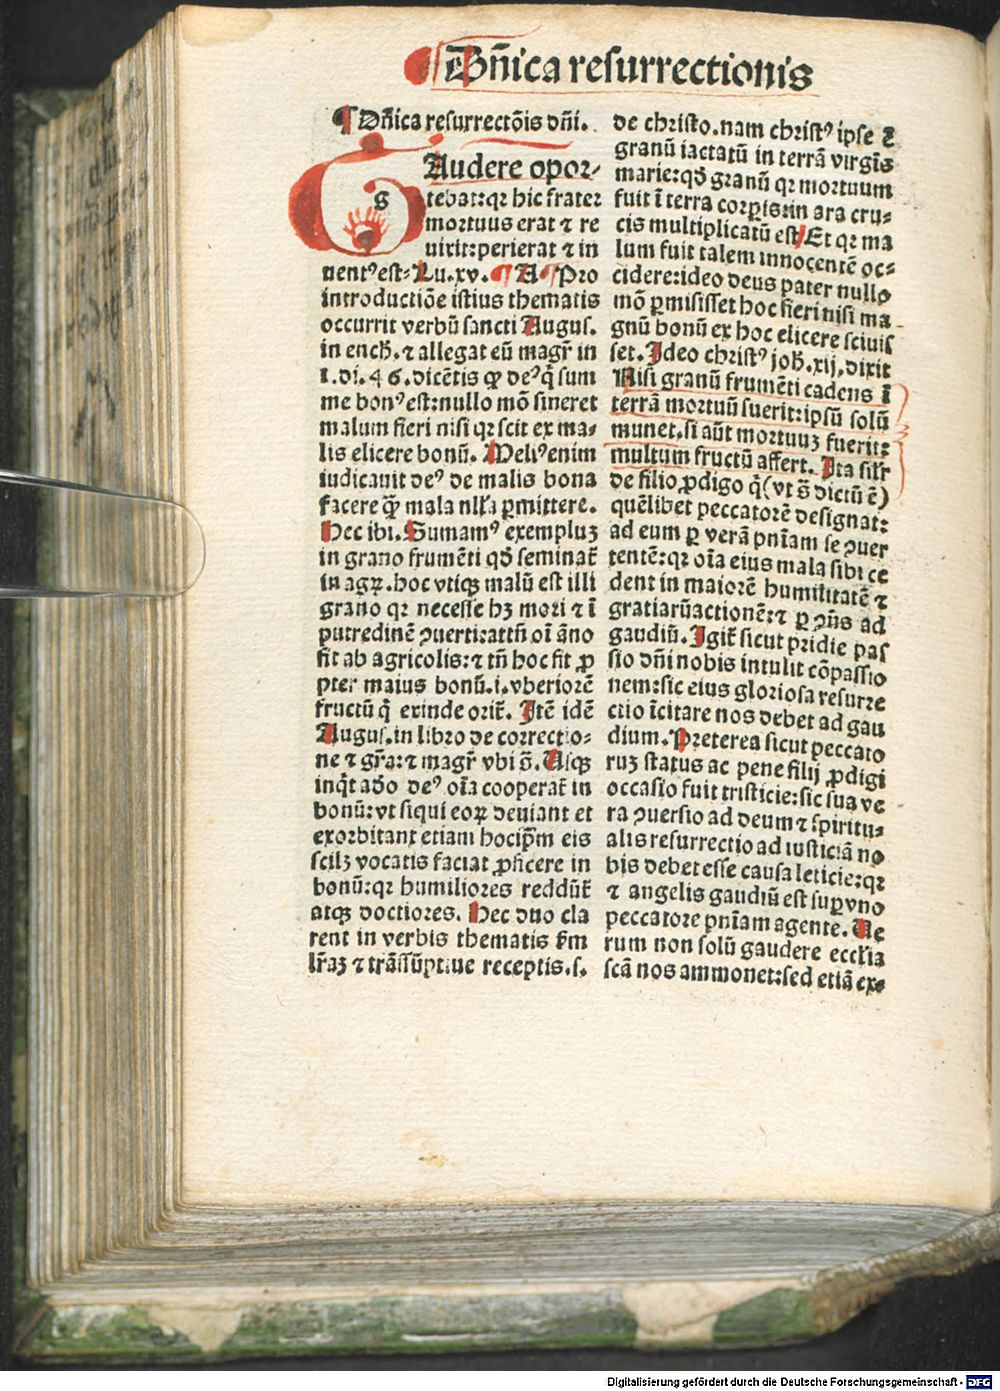 Dn̄ica resurrectionis
¶ Dn̄ica resurrectōis dn̄i.
GAudere opor-
tebat:qꝛ hic frater
mortuus erat ⁊ re
uixit:perierat ⁊ in
uentꝰ est. Lu. xv. ¶ A ¶ Pro
introductiōe istius thematis
occurrit verbū sancti Augus.
in ench. ⁊ allegat eū magr̄ in
1. di. 46. dicētis ꝙ deꝰ q̄ sum
me bonꝰ est:nullo mō sineret
malum fieri nisi qꝛ scit ex ma-
lis elicere bonū. Meliꝰ enim
iudicauit deꝰ de malis bona
facere q̄ꝫ mala nl̄la ꝑmittere.
Hec ibi. Sumamꝰ exempluꝫ
in grano frumēti qd̄ seminat̄
in agꝝ. hoc vtiqꝫ malū est illi
grano qꝛ necesse hꝫ mori ⁊ ī
putredinē ꝯuerti:attn̄ oī āno
fit ab agricolis:⁊ tn̄ hoc fit ꝓ
pter maius bonū.i.vberiorē
fructū q̄ exinde orit̄. Itē idē
Augus. in libro de correctio-
ne ⁊ gr̄a:⁊ magr̄ vbi s̄. Usqꝫ
inq̄t adeo deꝰ oīa cooperat̄ in
bonū:vt siqui eoꝝ deuiant et
exorbitant etiam hocip̄m eis
scilꝫ vocatis faciat ꝓficere in
bonū:qꝛ humiliores reddūt̄
atqꝫ doctiores. Hec duo cla
rent in verbis thematis s̄m
lr̄aꝫ ⁊ trāssūptiue receptis.s.
de christo.nam christꝰ ipse ē
granū iactatū in terrā virgīs
marie:qd̄ granū qꝛ mortuum
fuit ī terra corꝑis:in ara cru-
cis multiplicatū est. Et qꝛ ma
lum fuit talem innocentē oc-
cidere:ideo deus pater nullo
mō ꝑmisisset hoc fieri nisi ma
gnū bonū ex hoc elicere sciuis
set. Ideo christꝰ joh. xij. dixit
Nisi granū frumēti cadens ī
terrā mortuū fuerit:ipsū solū
manet. si aūt mortuuꝫ fuerit:
multum fructū affert. Ita sil̄r
de filio ꝓdigo q̄ (vt s̄ dictū ē)
quēlibet peccatorē designat:
ad eum ꝑ verā pn̄iam se ꝯuer
tentē:qꝛ oīa eius mala sibi ce
dent in maiorē humilitatē ⁊
gratiarūactionē:⁊ ꝑ ꝯn̄s ad
gaudiū. Igit̄ sicut pridie pas
sio dn̄i nobis intulit cōpassio
nem:sic eius gloriosa resurre
ctio īcitare nos debet ad gau
dium. Preterea sicut peccato
ruꝫ status ac pene filij ꝓdigi
occasio fuit tristicie:sic sua ve
ra ꝯuersio ad deum ⁊ spiritu-
alis resurrectio ad iusticiā no
bis debet esse causa leticie:qꝛ
⁊ angelis gaudiū est suꝑ vno
peccatore pn̄iam agente. Ue
rum non solū gaudere eccl̄ia
scā nos ammonet:sed etiā ex-
Digitalisierung gefördert durch die Deutsche Forschungsgemeinschaft - DFG